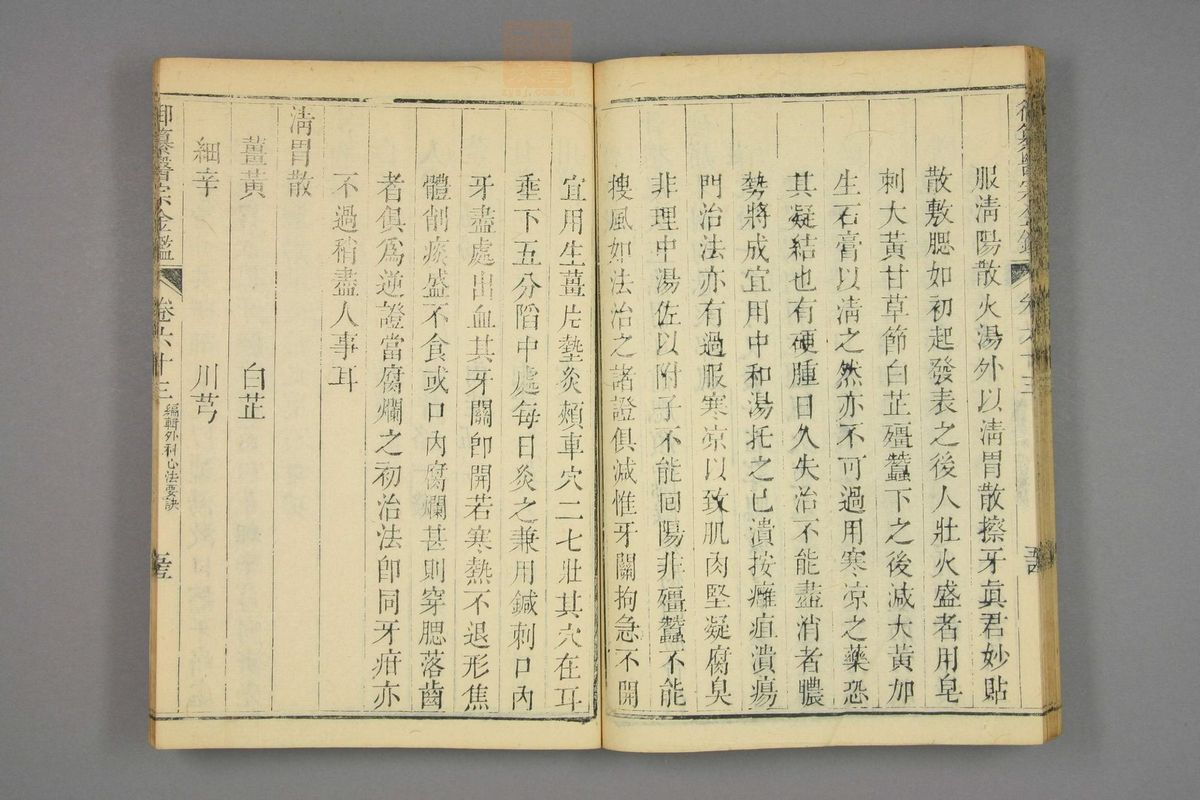 御纂醫宗金鑑
卷六十三
服淸陽散火湯外以淸胃散擦牙眞君妙貼
散敷腮如初起發表之後人壯火盛者用皂
刺大黃甘草節白芷殭蠶下之後減大黃加
生石膏以淸之然亦不可過用寒凉之藥恐
其凝結也有硬腫日久失治不能盡消者膿
勢將成宜用中和湯托之已潰按癰疽潰瘍
門治法亦有過服寒凉以致肌肉堅凝腐臭
非理中湯佐以附子不能回陽非殭蠶不能
搜風如法治之諸證俱減惟牙關拘急不開
宜用生薑片墊灸頰車穴二七壯其穴在耳
垂下五分陷中處每日灸之兼用鍼刺口內
牙盡處出血其牙關卽開若寒熱不退形焦
體削痰盛不食或口內腐爛甚則穿腮落齒
者俱爲逆證當腐爛之初治法卽同牙疳亦
不過稍盡人事耳
淸胃散
薑黃 白芷
細辛 川芎
御纂醫宗金鑑
卷六十三
編輯外科心法要訣